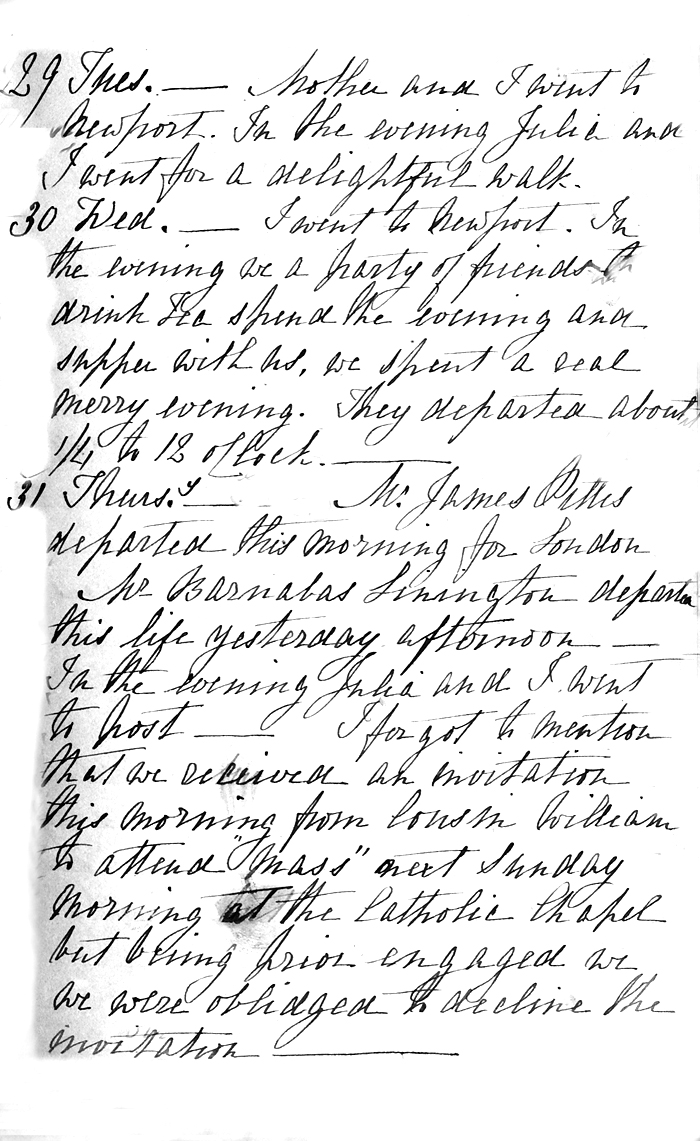 29 Tues. — Mother and I went to
Newport. In the evening Julia and
I went for a delightful walk.
30 Wed. — I went to Newport. In
the evening we a party of friends to
drink Tea spend the evening and
supper with us, we spent a real
merry evening. They departed about
1/4 to 12 o'Clock. —
31 Thurs.y — Mr. James Pittis
departed this morning for London
Mr Barnabas Linington departed
this life yesterday afternoon —
In the evening Julia and I went
to post — I forgot to mention
that we recieved an invitation
this morning from Cousin William
to attend "Mass" next Sunday
morning at the Catholic Chapel
but being prior engaged we
we were oblidged to decline the
invitation —